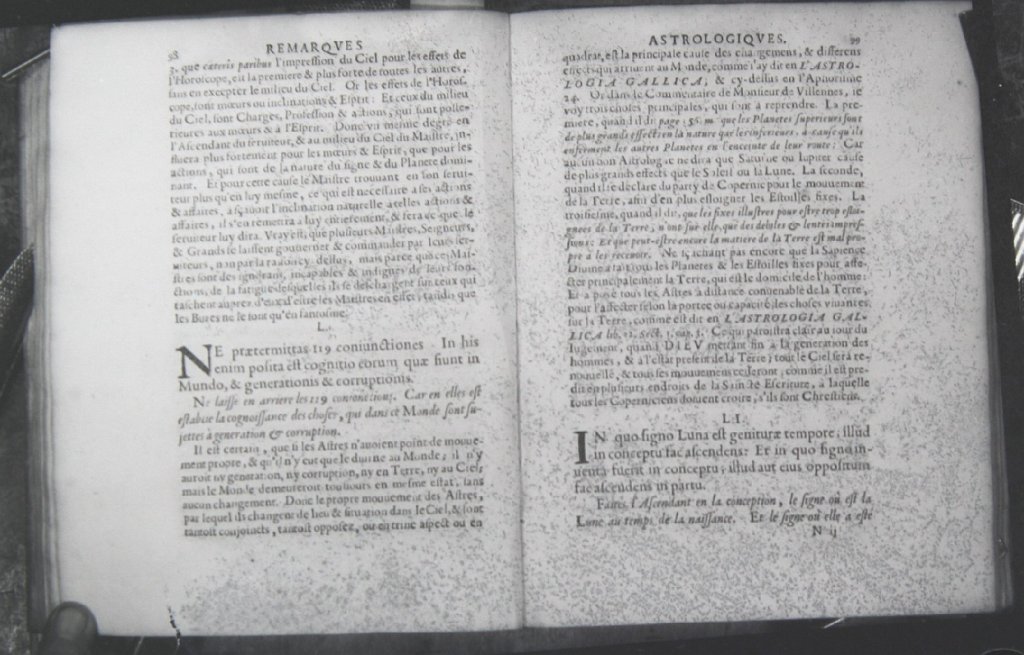 98
REMARQVES
3. que cæteris paribus l'impression du Ciel pour les effets de
l'Horoscope, est la premiere & plus forte de toutes les autres,
sans en excepter le milieu du Ciel. Or les effets de l'Horos-
cope, sont mœurs ou inclinations & Esprit: Et ceux du milieu
du Ciel, sont Charges, Profession & actions, qui sont poste-
rieures aux mœurs & à l'Esprit. Donc vn mesme degré en
l'Ascendant du seruiteur, & au milieu du Ciel du Maistre, in-
fluera plus fortement pour les mœurs & Esprit, que pour les
actions, qui sont de la nature du signe & du Planete domi-
nant. Et pour cette cause le Maistre trouuant en son serui-
teur plus qu'en luy mesme, ce qui est necessaire a ses actions
& affaires, a sçauoir l'inclination naturelle a telles actions &
affaires, il s'en remettra a luy entierement, & fera ce que le
seruiteur luy dira. Vray est, que plusieurs Maistres, Seigneurs,
& Grands se laissent gouuerner & commander par leurs ser-
uiteurs, non par la raison cy-dessus, mais parce que ces Mai-
stres sont des ignorans, incapables & indignes de leurs fon-
ctions, de la fatigue desquelles ils se deschargent sur ceux qui
taschent aupres d'eux d'estre les Maistres en effet; tandis que
les Buses ne le sont qu'en fantosme.
L.
NE prætermittas 119 coniunctiones. In his
enim posita est cognitio eorum quæ fiunt in
Mundo, & generationis & corruptionis.
Ne laisse en arriere les 119 conionctions. Car en elles est
establie la cognoissance des choses, qui dans ce Monde sont su-
jettes à generation & corruption.
Il est certain, que si les Astres n'auoient point de mouue-
ment propre, & qu'il n'y eut que le diurne au Monde; il n'y
auroit ny generation, ny corruption, ny en Terre, ny au Ciel;
mais le Monde demeureroit tousiours en mesme estat, sans
aucun changement. Donc le propre mouuement des Astres,
par lequel ils changent de lieu & situation dans le Ciel, & sont
tantost conjoncts, tantost opposez, ou en trine aspect ou en
ASTROLOGIQVES.
99
quadrat, est la principale cause des changemens, & differens
effects qui arriuent au Monde, comme i'ay dit en L'ASTRO-
LOGIA GALLICA, & cy-dessus en l'Aphorisme
24. Or dans le Commentaire de Monsieur de Villennes, ie
voy trois choses principales, qui sont à reprendre. La pre-
miere, quand il dit page 56. que les Planetes superieurs font
de plus grands effects en la nature que les inferieurs, à cause qu'ils
enferment les autres Planetes en l'enceinte de leur route: Car
aucun bon Astrologue ne dira que Saturne ou Iupiter cause
de plus grands effects que le Soleil ou la Lune. La seconde,
quand il se declare du party de Copernic pour le mouuement
de la Terre, afin d'en plus esloigner les Estoilles fixes. La
troisiesme, quand il dit, que les fixes illustres pour estre trop esloi-
gnées de la Terre, n'ont sur elle, que des debiles & lentes impres-
sions; Et que peut-estre encore la matiere de la Terre est mal pro-
pre à les receuoir. Ne sçachant pas encore que la Sapience
Diuine a fait tous les Planetes & les Estoilles fixes pour affe-
cter principalement la Terre, qui est le domicile de l'homme:
Et a posé tous les Astres à distance conuenable de la Terre,
pour l'affecter selon la portée ou capacité des choses viuantes
sur la Terre, comme est dit en L'ASTROLOGIA GAL-
LICA lib. 21. Sect. 1. cap. 3. Ce qui paroistra clair au iour du
Iugement, quand DIEV mettant fin à la generation des
hommes, & à l'estat present de la Terre; tout le Ciel sera re-
nouuellé, & tous ses mouuemens cederont, comme il est pre-
dit en plusieurs endroits de la Saincte Escriture, à laquelle
tous les Coperniciens doiuent croire, s'ils sont Chrestiens.
LI.
IN quo signo Luna est genituræ tempore, illud
in conceptu fac ascendens: Et in quo signo in-
uenta fuerit in conceptu; illud aut eius oppositum
fac ascendens in partu.
Faites l'Ascendant en la conception, le signe où est la
Lune au temps de la naissance. Et le signe où elle a esté
N ij